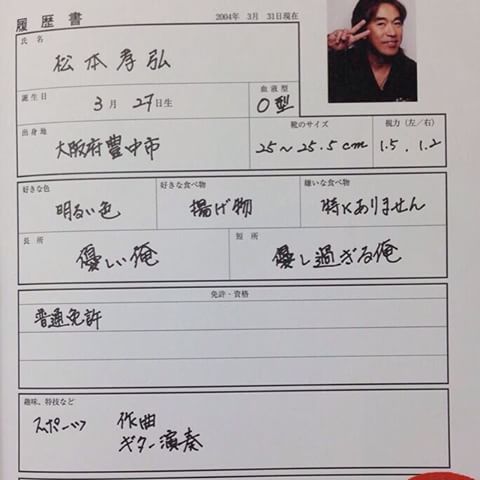 履歴書
2004年 3月 31日現在
氏名
松本孝弘
誕生日
3月 27日生
血液型
O型
出身地
大阪府豊中市
靴のサイズ
25〜25.5cm
視力（左／右）
1.5 . 1.2
好きな色
明るい色
好きな食べ物
揚げ物
嫌いな食べ物
特にありません
長所
優しい俺
短所
優し過ぎる俺
免許・資格
普通免許
趣味、特技など
スポーツ 作曲
ギター演奏